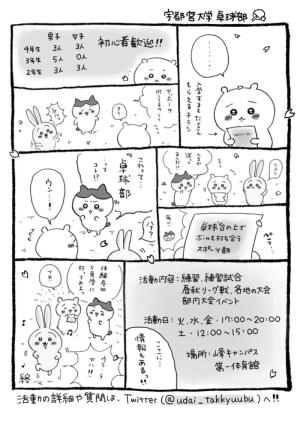 宇都宮大学 卓球部
・・・・・・・
入学するとたくさん
もらえるチラシ
男子 女子
4年生 3人 3人
3年生 5人 0人
2年生 3人 3人
初心者歓迎!!
卓球台の上で
ボールを打ち合う
スポーツ部
これって…
"卓球部"
…って
コト!?
ウン…!
活動内容:練習、練習試合
春秋リーグ戦、各地の大会
部内大会イベント
活動日:火、水、金・17:00~20:00
土・12:00~15:00
場所:峰キャンパス
第一体育館
ここに…
情報もある!!
体験参加
と見学に
行こう
活動の詳細や質問は、Twitter(@udai_takkyuubu)へ!!